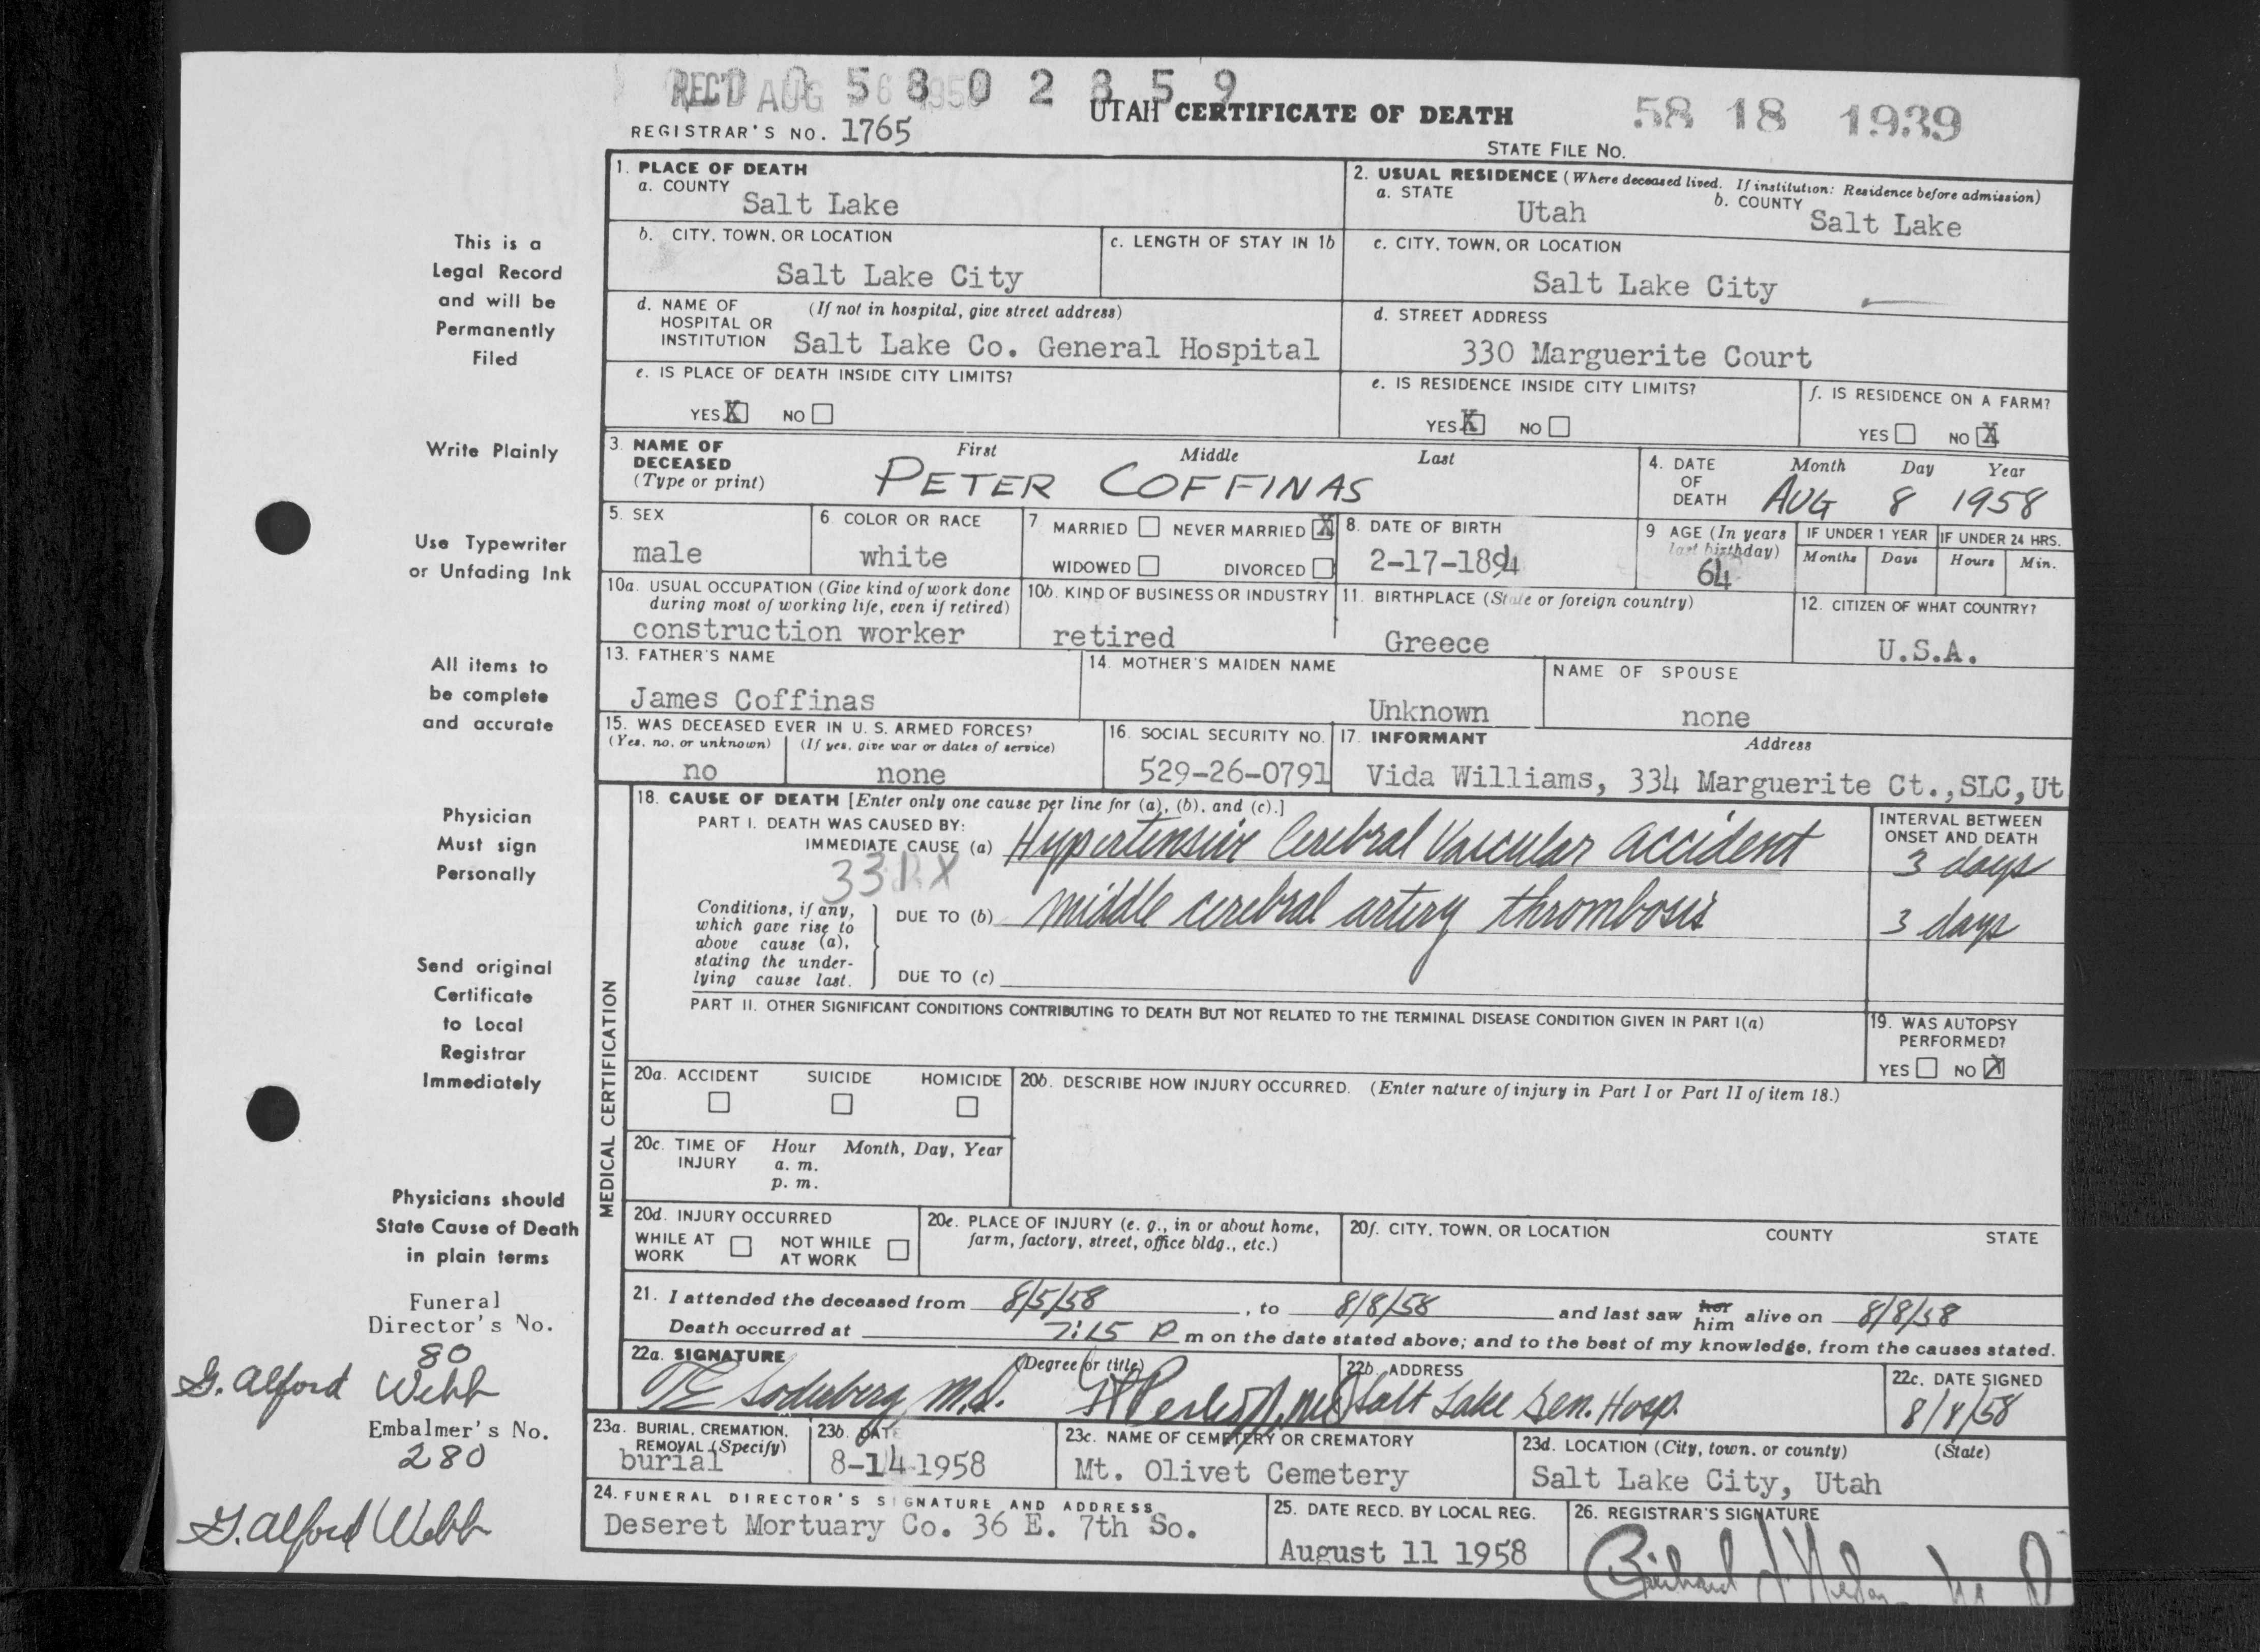 REC'D AUG 6 1958 0 5 8 0 2 8 5 9
UTAH CERTIFICATE OF DEATH
58 18 1939
REGISTRAR'S NO. 1765
STATE FILE NO.
This is a
Legal Record
and will be
Permanently
Filed
Write Plainly
Use Typewriter
or Unfading Ink
All items to
be complete
and accurate
Physician
Must sign
Personally
Send original
Certificate
to Local
Registrar
Immediately
Physicians should
State Cause of Death
in plain terms
Funeral
Director's No.
80
G. Alford Webb
Embalmer's No.
280
G. Alford Webb
1. PLACE OF DEATH
a. COUNTY
Salt Lake
2. USUAL RESIDENCE (Where deceased lived. If institution: Residence before admission)
a. STATE Utah b. COUNTY Salt Lake
b. CITY, TOWN, OR LOCATION
Salt Lake City
c. LENGTH OF STAY IN 1b
c. CITY, TOWN, OR LOCATION
Salt Lake City
d. NAME OF (If not in hospital, give street address)
HOSPITAL OR
INSTITUTION Salt Lake Co. General Hospital
d. STREET ADDRESS
330 Marguerite Court
e. IS PLACE OF DEATH INSIDE CITY LIMITS?
YES X NO
e. IS RESIDENCE INSIDE CITY LIMITS?
YES X NO
f. IS RESIDENCE ON A FARM?
YES NO X
3. NAME OF DECEASED (Type or print)
First Middle Last
PETER COFFINAS
4. DATE OF DEATH
Month Day Year
AUG 8 1958
5. SEX
male
6. COLOR OR RACE
white
7. MARRIED NEVER MARRIED X
WIDOWED DIVORCED
8. DATE OF BIRTH
2-17-1894
9 AGE (In years
last birthday)
64
IF UNDER 1 YEAR
Months Days
IF UNDER 24 HRS.
Hours Min.
10a. USUAL OCCUPATION (Give kind of work done
during most of working life, even if retired)
construction worker
10b. KIND OF BUSINESS OR INDUSTRY
retired
11. BIRTHPLACE (State or foreign country)
Greece
12. CITIZEN OF WHAT COUNTRY?
U.S.A.
13. FATHER'S NAME
James Coffinas
14. MOTHER'S MAIDEN NAME
Unknown
NAME OF SPOUSE
none
15. WAS DECEASED EVER IN U. S. ARMED FORCES?
(Yes, no, or unknown) (If yes, give war or dates of service)
no none
16. SOCIAL SECURITY NO.
529-26-0791
17. INFORMANT Address
Vida Williams, 334 Marguerite Ct.,SLC,Ut
MEDICAL CERTIFICATION
18. CAUSE OF DEATH [Enter only one cause per line for (a), (b), and (c).]
PART I. DEATH WAS CAUSED BY:
IMMEDIATE CAUSE (a) Hypertensive Cerebral Vascular accident
INTERVAL BETWEEN
ONSET AND DEATH
3 days
Conditions, if any,
which gave rise to
above cause (a),
stating the under-
lying cause last.
DUE TO (b) middle cerebral artery thrombosis
3 days
DUE TO (c)
PART II. OTHER SIGNIFICANT CONDITIONS CONTRIBUTING TO DEATH BUT NOT RELATED TO THE TERMINAL DISEASE CONDITION GIVEN IN PART I(a)
19. WAS AUTOPSY
PERFORMED?
YES NO X
20a. ACCIDENT SUICIDE HOMICIDE
20b. DESCRIBE HOW INJURY OCCURRED. (Enter nature of injury in Part I or Part II of item 18.)
20c. TIME OF INJURY
Hour Month, Day, Year
a. m.
p. m.
20d. INJURY OCCURRED
WHILE AT WORK NOT WHILE AT WORK
20e. PLACE OF INJURY (e. g., in or about home,
farm, factory, street, office bldg., etc.)
20f. CITY, TOWN, OR LOCATION COUNTY STATE
21. I attended the deceased from 8/5/58, to 8/8/58 and last saw her him alive on 8/8/58
Death occurred at 7:15 P m on the date stated above; and to the best of my knowledge, from the causes stated.
22a. SIGNATURE (Degree or title)
T E Soderberg M.D.
22b. ADDRESS
Salt Lake Gen. Hosp.
22c. DATE SIGNED
8/8/58
23a. BURIAL, CREMATION,
REMOVAL (Specify)
burial
23b. DATE
8-14-1958
23c. NAME OF CEMETERY OR CREMATORY
Mt. Olivet Cemetery
23d. LOCATION (City, town, or county) (State)
Salt Lake City, Utah
24. FUNERAL DIRECTOR'S SIGNATURE AND ADDRESS
Deseret Mortuary Co. 36 E. 7th So.
25. DATE RECD. BY LOCAL REG.
August 11 1958
26. REGISTRAR'S SIGNATURE